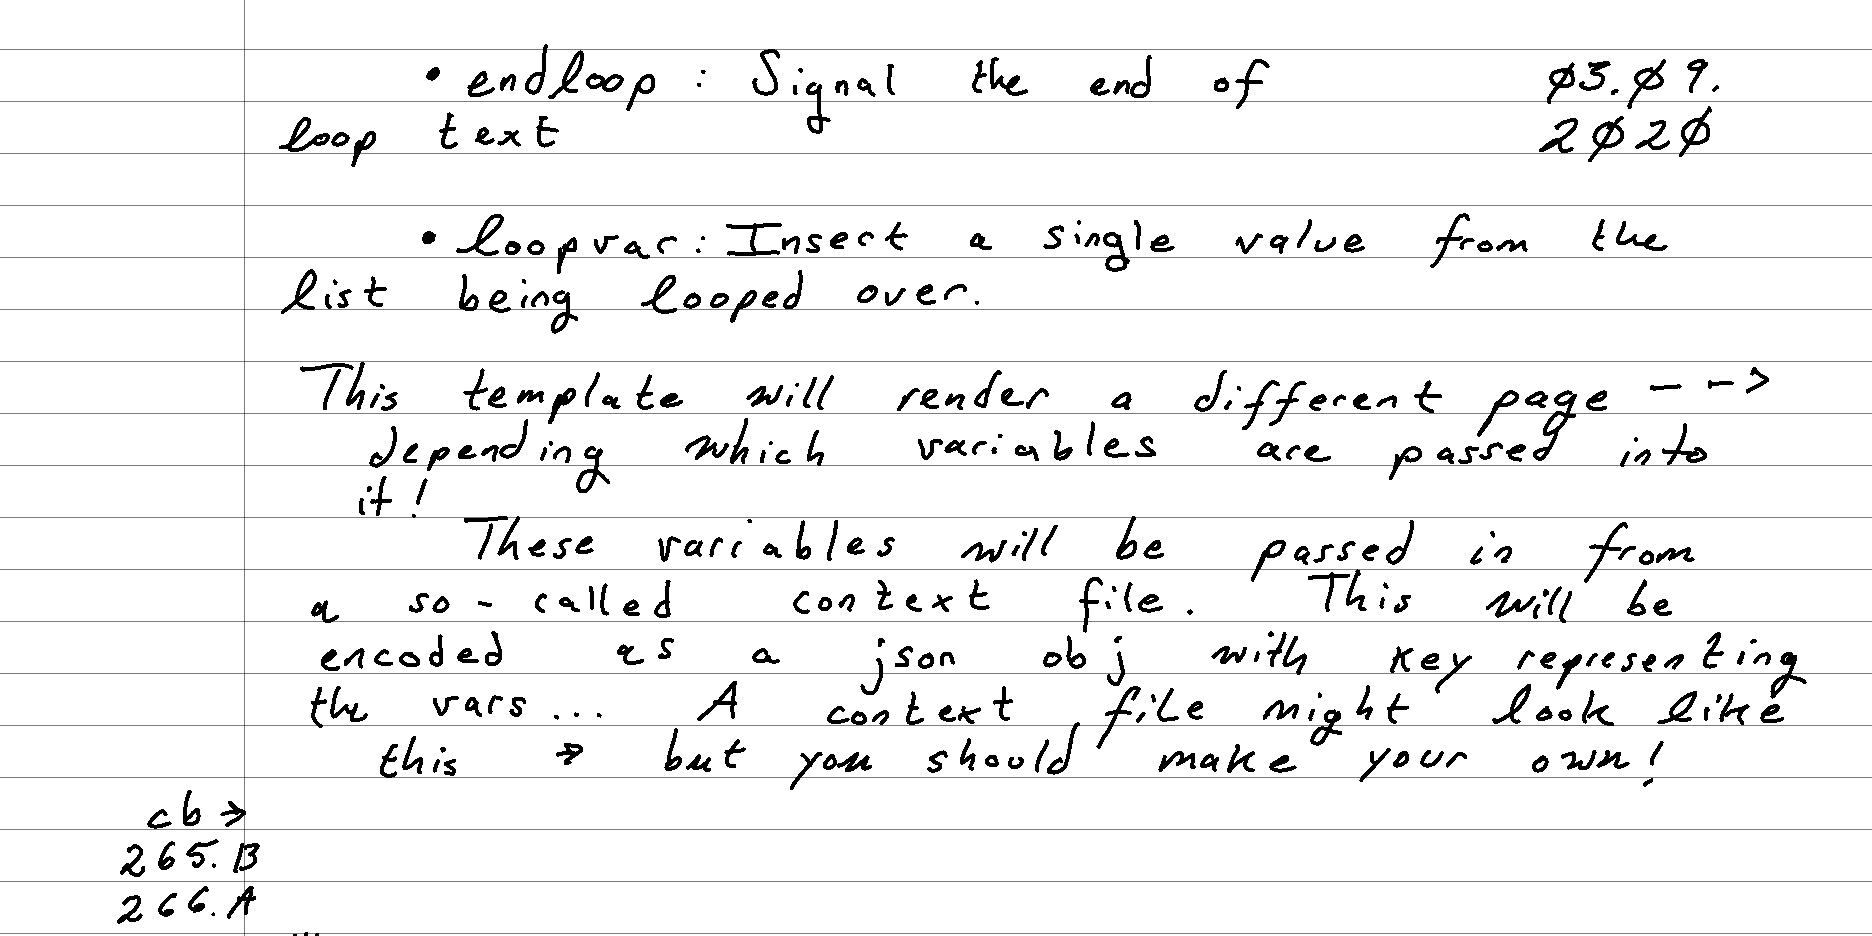 • endloop : Signal the end of
loop text
Ø3.Ø9.
2Ø2Ø
• loopvar: Insert a single value from the
list being looped over.
This template will render a different page - - ->
depending which variables are passed into
it!
These variables will be passed in from
a so-called context file. This will be
encoded as a json obj with key representing
the vars... A context file might look like
this → but you should make your own!
cb →
265.B
266.A